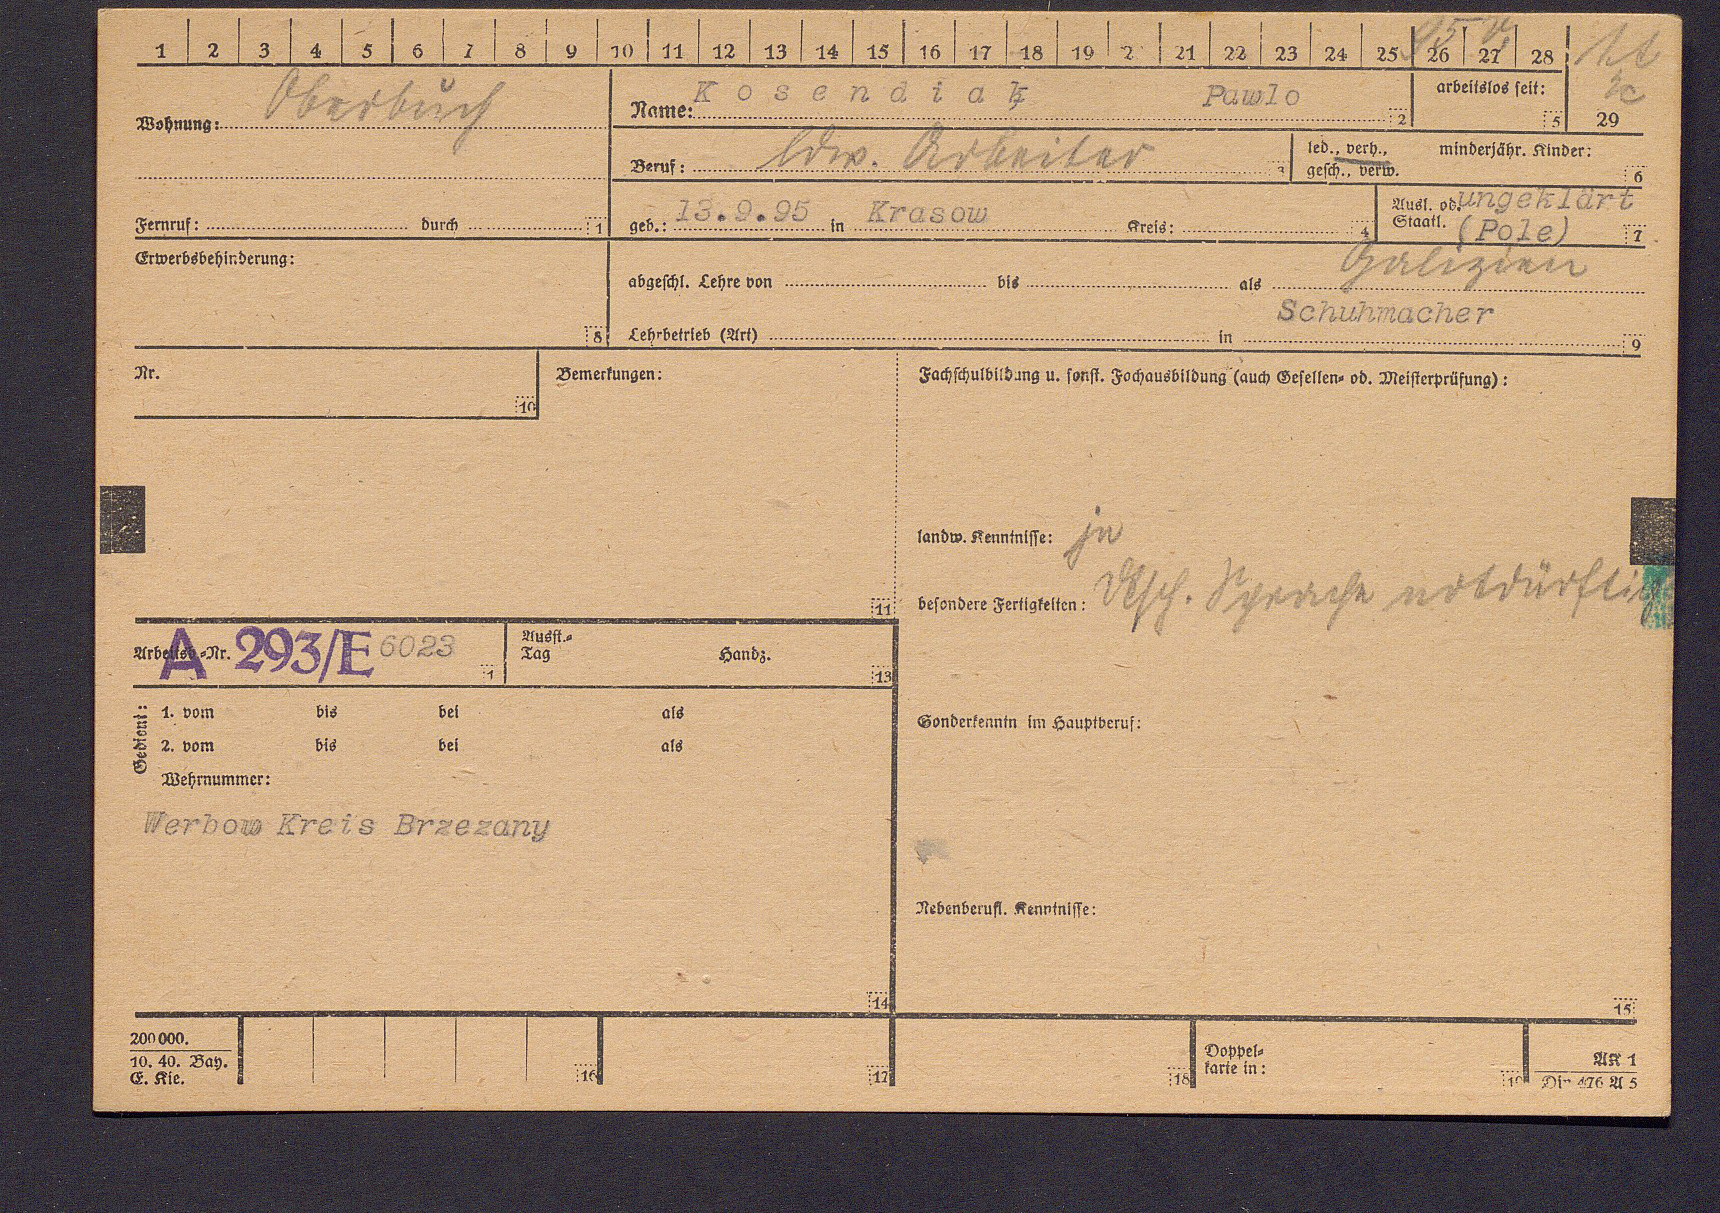 1 2 3 4 5 6 7 8 9 10 11 12 13 14 15 16 17 18 19 2 21 22 23 24 25 26 27 28
95
Wohnung: Oberbuch
Name: Kosendiak Pawlo 2
arbeitslos seit: 5
29
Beruf: ldw. Arbeiter 3
led., verh., gesch., verw.
minderjähr. Kinder: 6
Fernruf: durch 1
geb.: 13.9.95 in Krasow Kreis: 4
Ausl. od. Staatl. ungeklärt (Pole) 7
Galizien
Erwerbsbehinderung: 8
abgeschl. Lehre von bis als
Schuhmacher
Lehrbetrieb (Art) in 9
Nr. 10
Bemerkungen: 11
Fachschulbildung u. sonst. Fachausbildung (auch Gesellen- od. Meisterprüfung):
landw. Kenntnisse: ja
besondere Fertigkeiten: Dtsch. Sprache notdürftig
Arbeitsb.-Nr. A 293/E 6023 1
Ausst.-Tag Handz. 13
Gedient:
1. vom bis bei als
2. vom bis bei als
Wehrnummer:
Werbow Kreis Brzezany
14
Sonderkenntn im Hauptberuf:
Nebenberufl. Kenntnisse:
15
200 000.
10. 40. Bay.
E. Kie.
16 17 18
Doppel-
karte in: 19
AK 1
Din 476 A 5